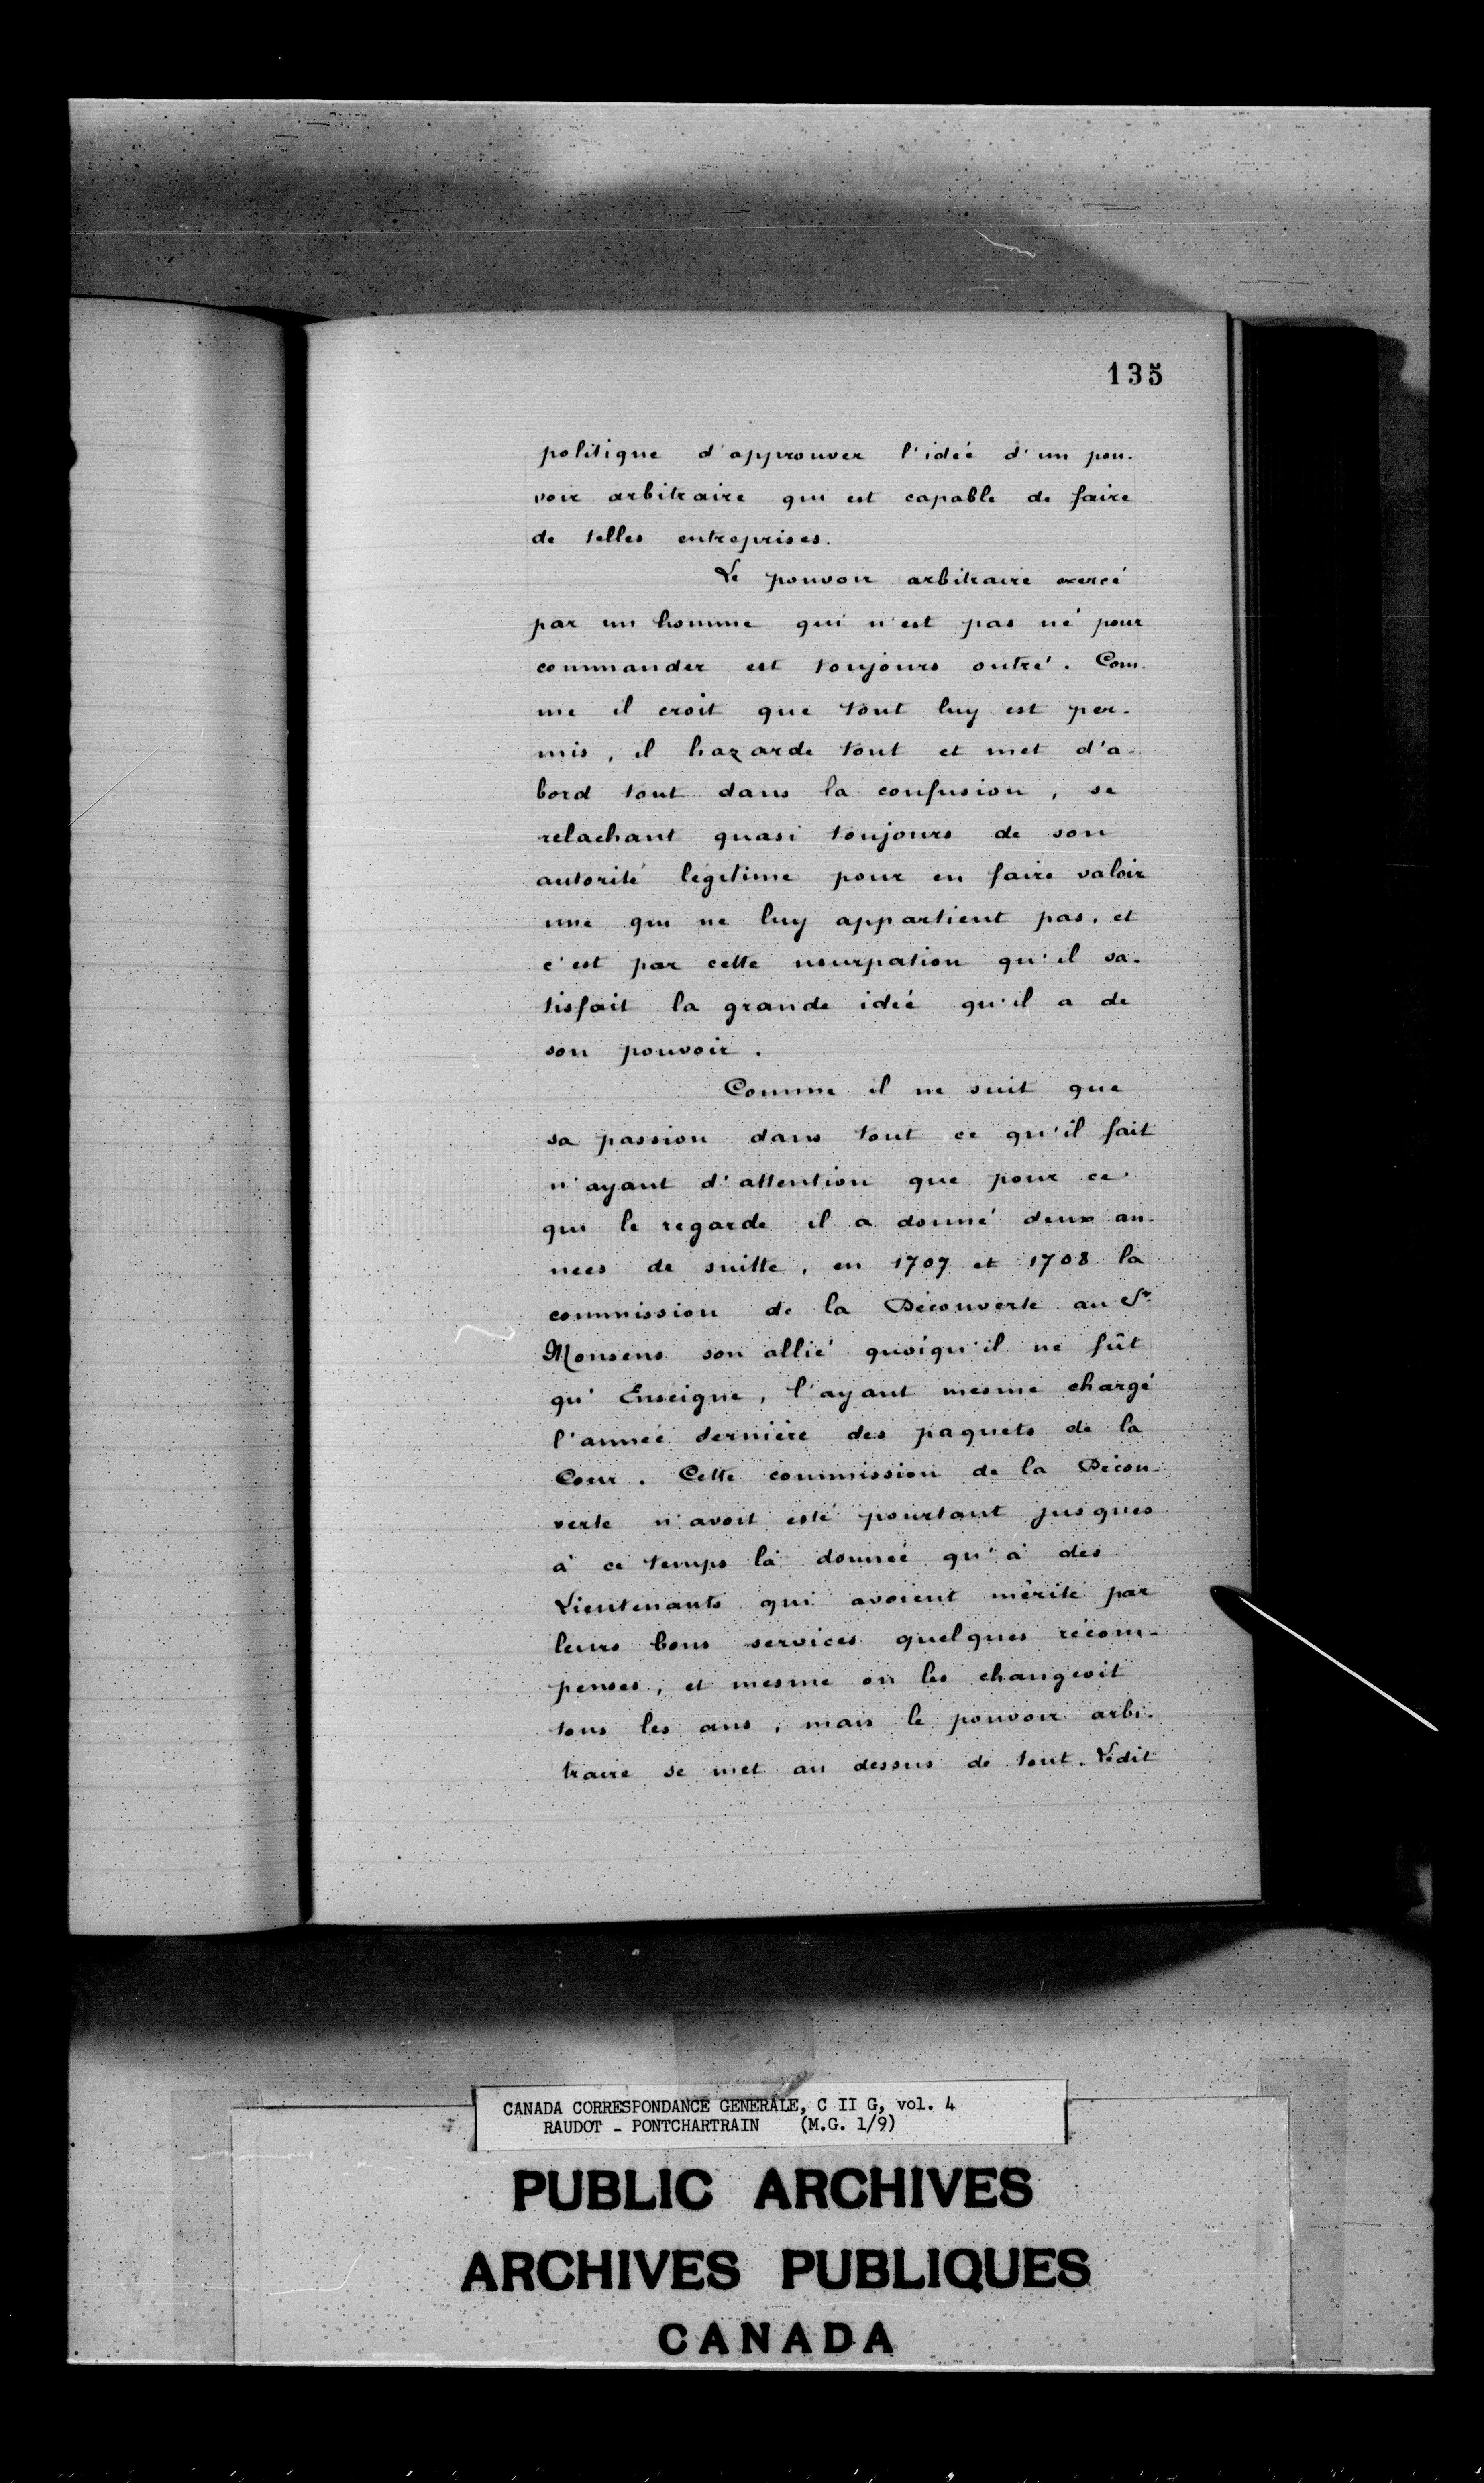 135
politique d'approuver l'idée d'un pou-
voir arbitraire qui est capable de faire
de telles entreprises.
Le pouvoir arbitraire exercé
par un homme qui n'est pas né pour
commander est toujours outré. Com-
me il croit que tout luy est per-
mis, il hazarde tout et met d'a-
bord tout dans la confusion, se
relachant quasi toujours de son
autorité légitime pour en faire valoir
une qui ne luy appartient pas, et
c'est par cette usurpation qu'il sa-
tisfait la grande idée qu'il a de
son pouvoir.
Comme il ne suit que
sa passion dans tout ce qu'il fait
n'ayant d'attention que pour ce
qui le regarde il a donné deux an-
nees de suitte, en 1707 et 1708 la
commission de la Découverte au Sr
Monsens son allié quoiqu'il ne fût
qu'Enseigne, l'ayant mesme chargé
l'année dernière des paquets de la
Cour. Cette commission de la Décou-
verte n'avoit esté pourtant jusques
à ce temps là donnée qu'à des
Lieutenants qui avoient mérité par
leurs bons services quelques récom-
penses, et mesme on les changeoit
tous les ans, mais le pouvoir arbi-
traire se met au dessus de tout. Ledit
CANADA CORRESPONDANCE GENERALE, C II G, vol. 4
RAUDOT - PONTCHARTRAIN (M.G. 1/9)
PUBLIC ARCHIVES
ARCHIVES PUBLIQUES
CANADA